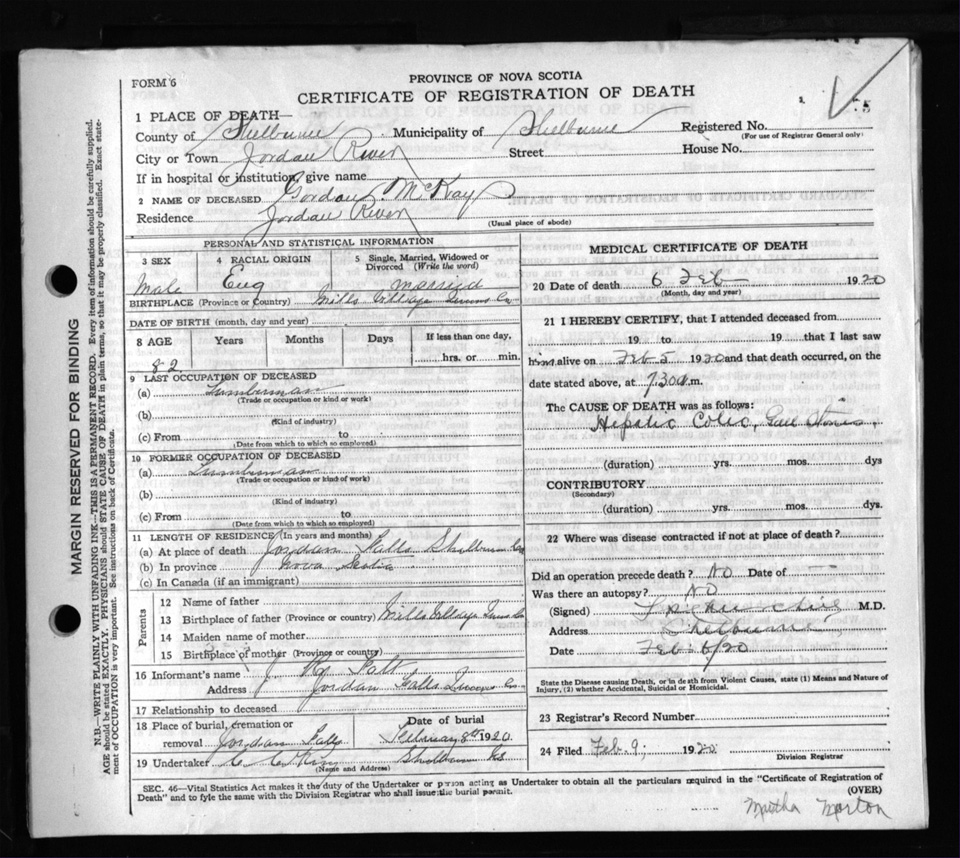 FORM 6
PROVINCE OF NOVA SCOTIA
CERTIFICATE OF REGISTRATION OF DEATH
5
1 PLACE OF DEATH—
County of Shelburne Municipality of Shelburne Registered No.
(For use of Registrar General only)
City or Town Jordan River Street House No.
If in hospital or institution, give name
2 NAME OF DECEASED Gordan McKay
Residence Jordan River
(Usual place of abode)
PERSONAL AND STATISTICAL INFORMATION
3 SEX 4 RACIAL ORIGIN 5 Single, Married, Widowed or Divorced (Write the word)
Male Eng married
BIRTHPLACE (Province or Country) Mills Village Queens Co
DATE OF BIRTH (month, day and year)
8 AGE Years Months Days If less than one day,
82 hrs. or min.
9 LAST OCCUPATION OF DECEASED
(a) Lumberman
(Trade or occupation or kind or work)
(b)
(Kind of industry)
(c) From to
(Date from which to which so employed)
10 FORMER OCCUPATION OF DECEASED
(a) Lumberman
(Trade or occupation or kind of work)
(b)
(Kind of industry)
(c) From to
(Date from which to which so employed)
11 LENGTH OF RESIDENCE (In years and months)
(a) At place of death Jordan Falls Shelburne Co
(b) In province Nova Scotia
(c) In Canada (if an immigrant)
Parents
12 Name of father
13 Birthplace of father (Province or country) Mills Village Queens Co
14 Maiden name of mother
15 Birthplace of mother (Province or country)
16 Informant's name Falls
Address Jordan Falls Co
17 Relationship to deceased
18 Place of burial, cremation or removal Jordan Falls
Date of burial February 8th 1920
19 Undertaker King Shelburne
(Name and Address)
MEDICAL CERTIFICATE OF DEATH
20 Date of death 6 Feb 1920
(Month, day and year)
21 I HEREBY CERTIFY, that I attended deceased from
19 to 19 that I last saw
him alive on Feb 5 1920 and that death occurred, on the
date stated above, at 730 a m.
The CAUSE OF DEATH was as follows:
Hepatic Colic, Gall Stones,
(duration) yrs. mos. dys
CONTRIBUTORY
(Secondary)
(duration) yrs. mos. dys.
22 Where was disease contracted if not at place of death?
Did an operation precede death? NO Date of —
Was there an autopsy? NO
(Signed) M.D.
Address Shelburne
Date Feb 6/20
State the Disease causing Death, or in death from Violent Causes, state (1) Means and Nature of
Injury, (2) whether Accidental, Suicidal or Homicidal.
23 Registrar's Record Number
24 Filed Feb. 9, 1920
Division Registrar
SEC. 46—Vital Statistics Act makes it the duty of the Undertaker or person acting as Undertaker to obtain all the particulars required in the "Certificate of Registration of
Death" and to fyle the same with the Division Registrar who shall issue the burial permit.
(OVER)
Martha Morton
MARGIN RESERVED FOR BINDING
N.B.—WRITE PLAINLY WITH UNFADING INK—THIS IS A PERMANENT RECORD. Every item of information should be carefully supplied.
AGE should be stated EXACTLY. PHYSICIANS should STATE CAUSE OF DEATH in plain terms, so that it may be properly classified. Exact state-
ment of OCCUPATION is very important. See instructions on back of Certificate.